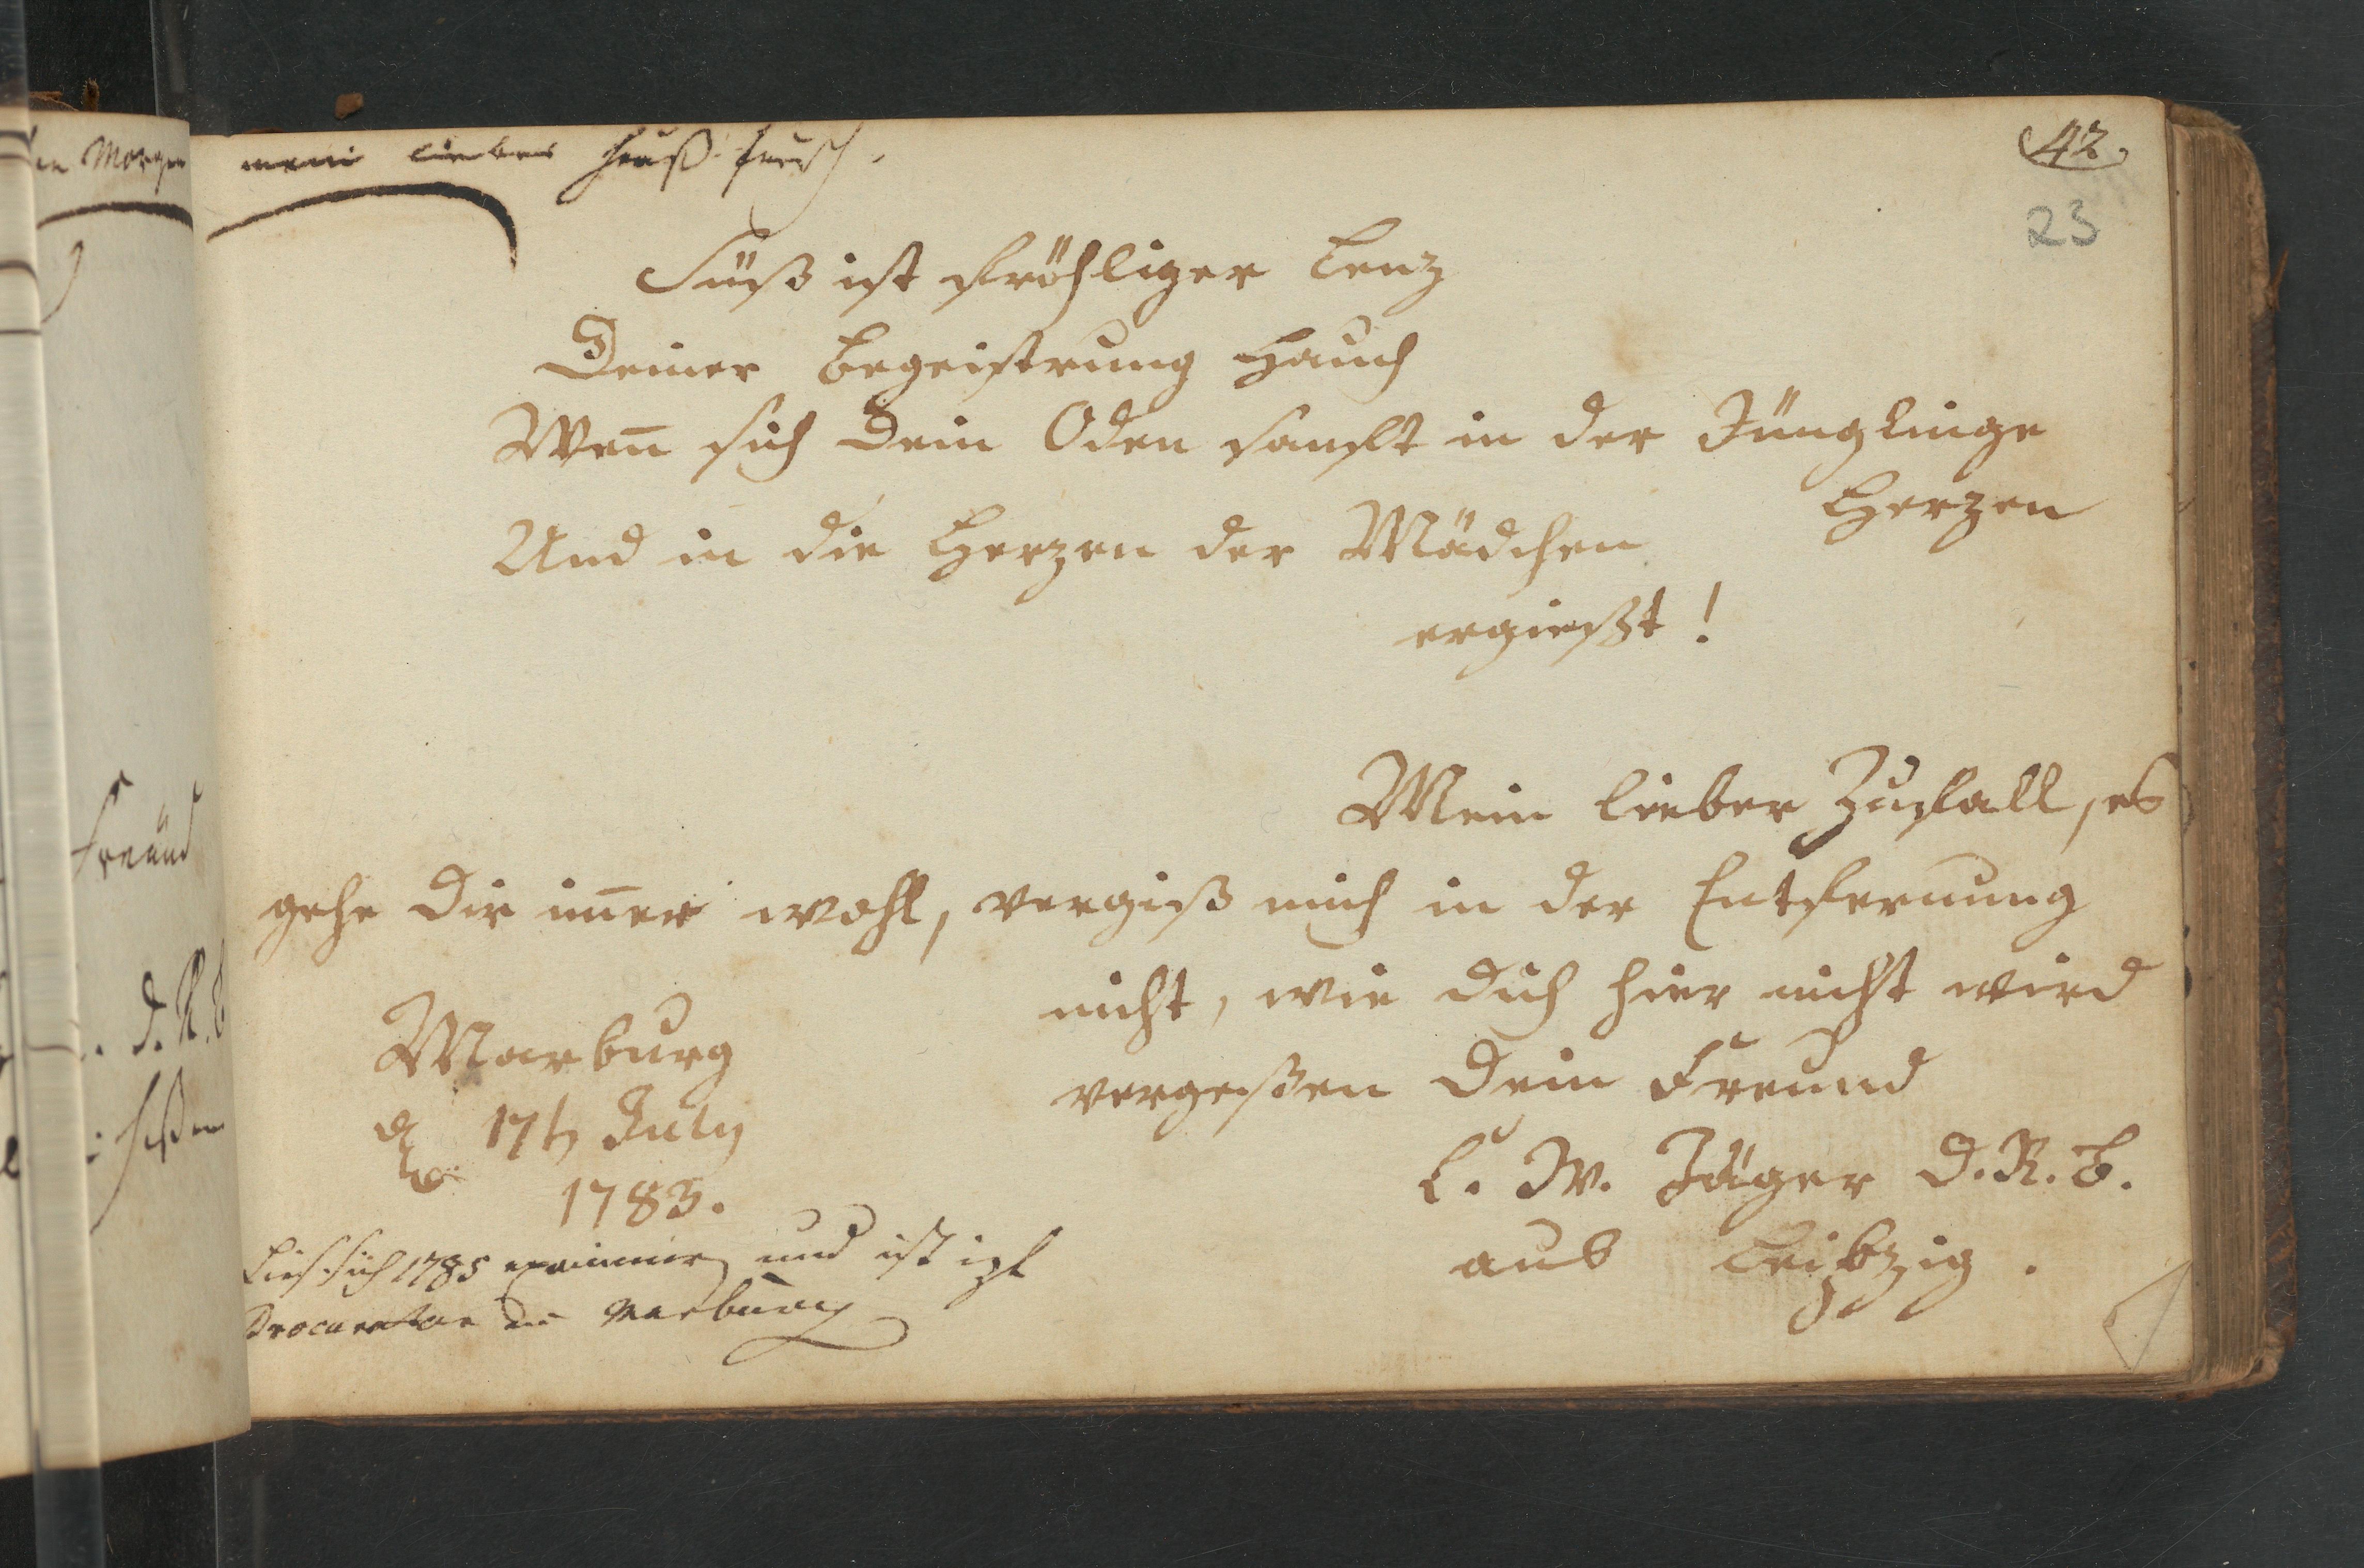 42.
23
mein lieber Hauß
Süß ist fröhliger Lenz
Deiner Begeistrung Hauch
Weñ sich Dein Oden sanft in der Jünglinge
Herzen
Und in die Herzen der Mädchen
ergießt!
Mein lieber Zufall, es
gehe Dir im̃er wohl, vergiß mich in der Entfernung
nicht, wie Dich hier nicht wird
vergeßen Dein Freund
C. W. Jäger D.R.B.
aus Leipzig.
Marburg
17t July
1783.
Ließ sich 1785 examinieren und ist izt
Procurator in Marburg
en Morgen
Freund
D. R. B